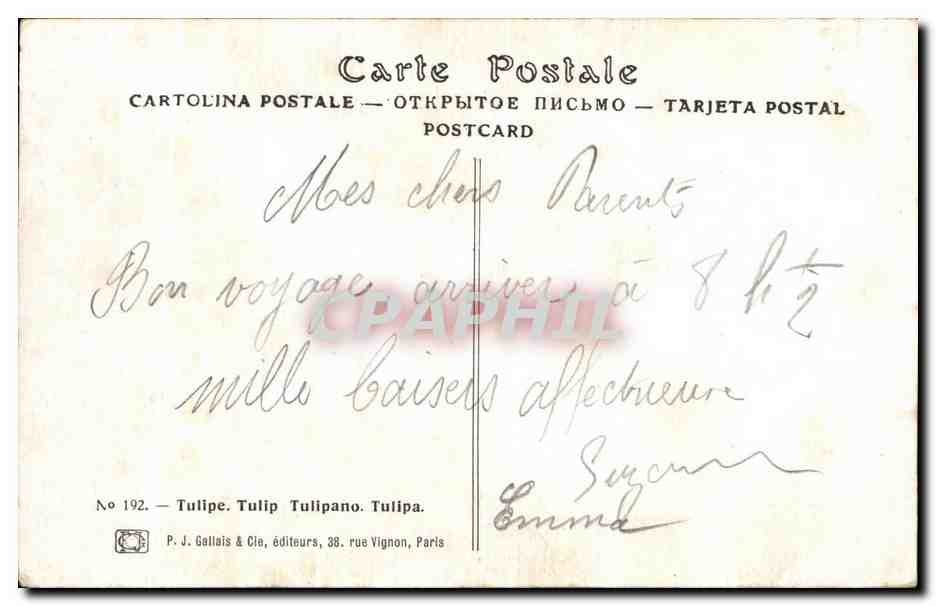 Carte Postale
CARTOLINA POSTALE — ОТКРЫТОЕ ПИСЬМО — TARJETA POSTAL
POSTCARD
Mes chers Parents
Bon voyage arriver à 8 h 1/2
CPAPHIL
mille baisers affectueux
Suzanne
Emma
No 192. — Tulipe. Tulip Tulipano. Tulipa.
P. J. Gallais & Cie, éditeurs, 38. rue Vignon, Paris